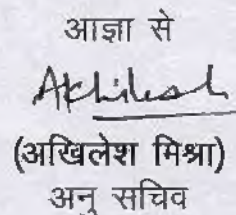 आज्ञा से
Akhilesh
(अखिलेश मिश्रा)
अनु सचिव